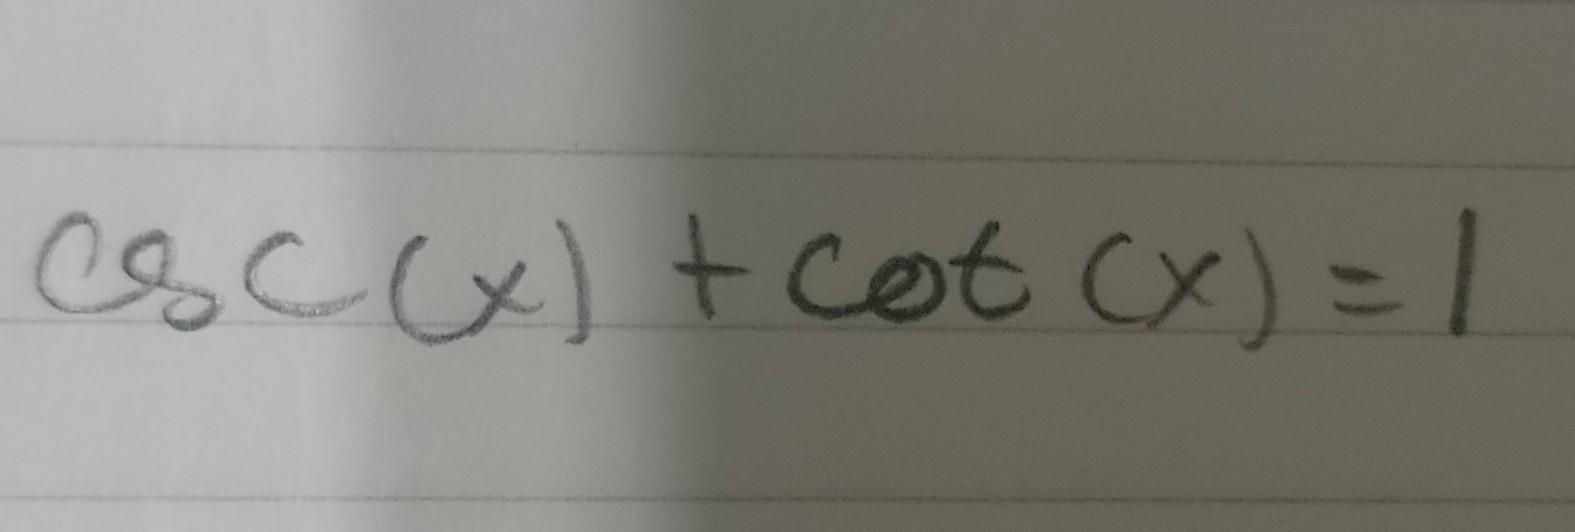 csc(x) + cot(x) = 1